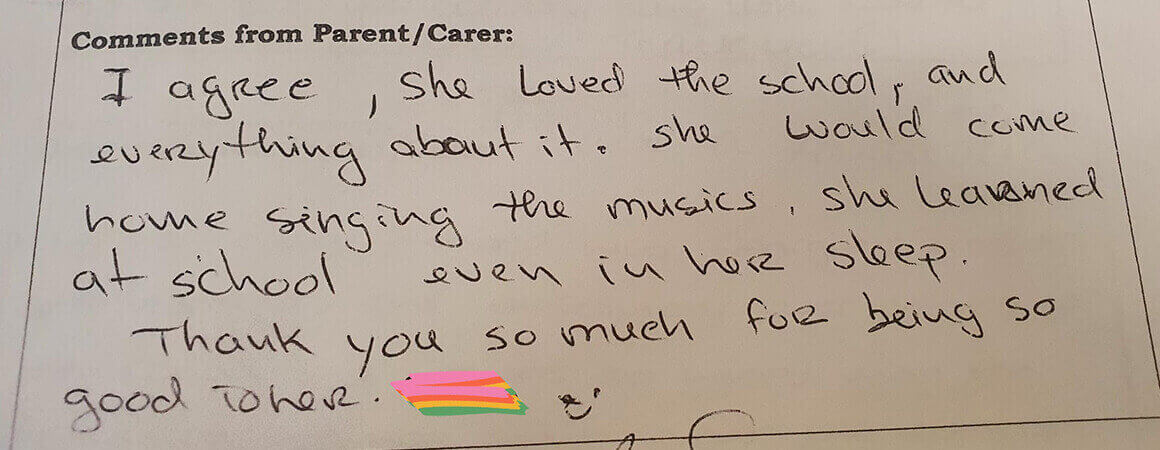 Comments from Parent/Carer:
I agree, she loved the school, and
everything about it. she would come
home singing the musics, she learned
at school even in her sleep.
Thank you so much for being so
good to her.